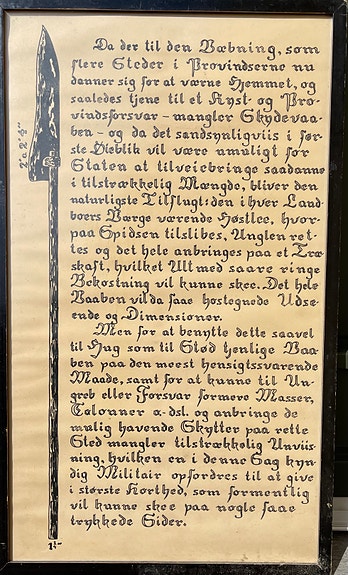 Da der til den Væbning, som
flere Steder i Provindserne nu
danner sig for at værne Hjemmet, og
saaledes tjene til et Kyst- og Pro-
vindsforsvar - mangler Skydevaa-
ben - og da det sandsynligviis i før-
ste Øieblik vil være umuligt for
Staten at tilveiebringe saadanne
i tilstrækkelig Mængde, bliver den
naturligste Tilflugt: den i hver Land-
boers Værge værende Høstlee, hvor-
paa Spidsen tilslibes, Vinglen ret-
tes og det hele anbringes paa et Træ
skaft, hvilket Alt med saare ringe
Bekostning vil kunne skee. Det hele
Vaaben vil da faae hostegnede Udse-
ende og Dimensioner.
Men for at benytte dette saavel
til Hug som til Stød tjenlige Vaa-
ben paa den meest hensigtssvarende
Maade, samt for at kunne til An-
greb eller Forsvar formere Masser,
Colonner &. dsl. og anbringe de
mulig havende Skytter paa rette
Sted mangler tilstrækkelig Anviis-
ning, hvilken en i denne Sag kyn-
dig Militair opfordres til at give
i største Korthed, som formentlig
vil kunne skee paa nogle faae
trykkede Sider.